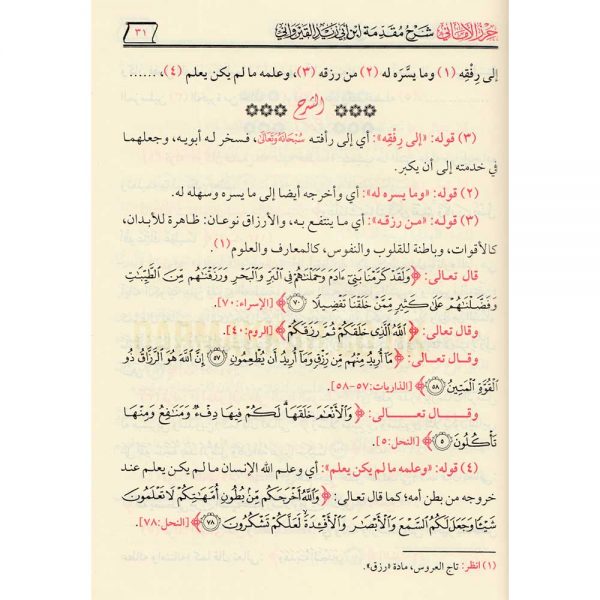 حرز الأماني شرح مقدمة ابن أبي زيد القيرواني
٣١
إلى رِفْقِه (١) وما يسَّرَه له (٢) من رزقه (٣)، وعلمه ما لم يكن يعلم (٤)، ......
الشرح
(٣) قوله: «إلى رِفْقِه»: أي إلى رأفته سُبْحَانَهُ وَتَعَالَى، فسخر له أبويه، وجعلهما
في خدمته إلى أن يكبر.
(٢) قوله: «وما يسره له»: أي وأخرجه أيضا إلى ما يسره وسهله له.
(٣) قوله: «من رزقه»: أي ما ينتفع به، والأرزاق نوعان: ظاهرة للأبدان،
كالأقوات، وباطنة للقلوب والنفوس، كالمعارف والعلوم(١).
قال تعالى: ﴿وَلَقَدْ كَرَّمْنَا بَنِىٓ ءَادَمَ وَحَمَلْنَٰهُمْ فِى ٱلْبَرِّ وَٱلْبَحْرِ وَرَزَقْنَٰهُم مِّنَ ٱلطَّيِّبَٰتِ
وَفَضَّلْنَٰهُمْ عَلَىٰ كَثِيرٍ مِّمَّنْ خَلَقْنَا تَفْضِيلًا ٧٠﴾ [الإسراء: ٧٠].
وقال تعالى: ﴿ٱللَّهُ ٱلَّذِى خَلَقَكُمْ ثُمَّ رَزَقَكُمْ﴾ [الروم: ٤٠].
وقال تعالى: ﴿مَآ أُرِيدُ مِنْهُم مِّن رِّزْقٍ وَمَآ أُرِيدُ أَن يُطْعِمُونِ ٥٧ إِنَّ ٱللَّهَ هُوَ ٱلرَّزَّاقُ ذُو
ٱلْقُوَّةِ ٱلْمَتِينُ ٥٨﴾ [الذاريات: ٥٧-٥٨].
وقال تعالى: ﴿وَٱلْأَنْعَٰمَ خَلَقَهَا ۗ لَكُمْ فِيهَا دِفْءٌ وَمَنَٰفِعُ وَمِنْهَا
تَأْكُلُونَ ٥﴾ [النحل: ٥].
(٤) قوله: «وعلمه ما لم يكن يعلم»: أي وعلم الله الإنسان ما لم يكن يعلم عند
خروجه من بطن أمه؛ كما قال تعالى: ﴿وَٱللَّهُ أَخْرَجَكُم مِّنۢ بُطُونِ أُمَّهَٰتِكُمْ لَا تَعْلَمُونَ
شَيْـًٔا وَجَعَلَ لَكُمُ ٱلسَّمْعَ وَٱلْأَبْصَٰرَ وَٱلْأَفْـِٔدَةَ ۙ لَعَلَّكُمْ تَشْكُرُونَ ٧٨﴾ [النحل: ٧٨].
(١) انظر: تاج العروس، مادة «رزق».